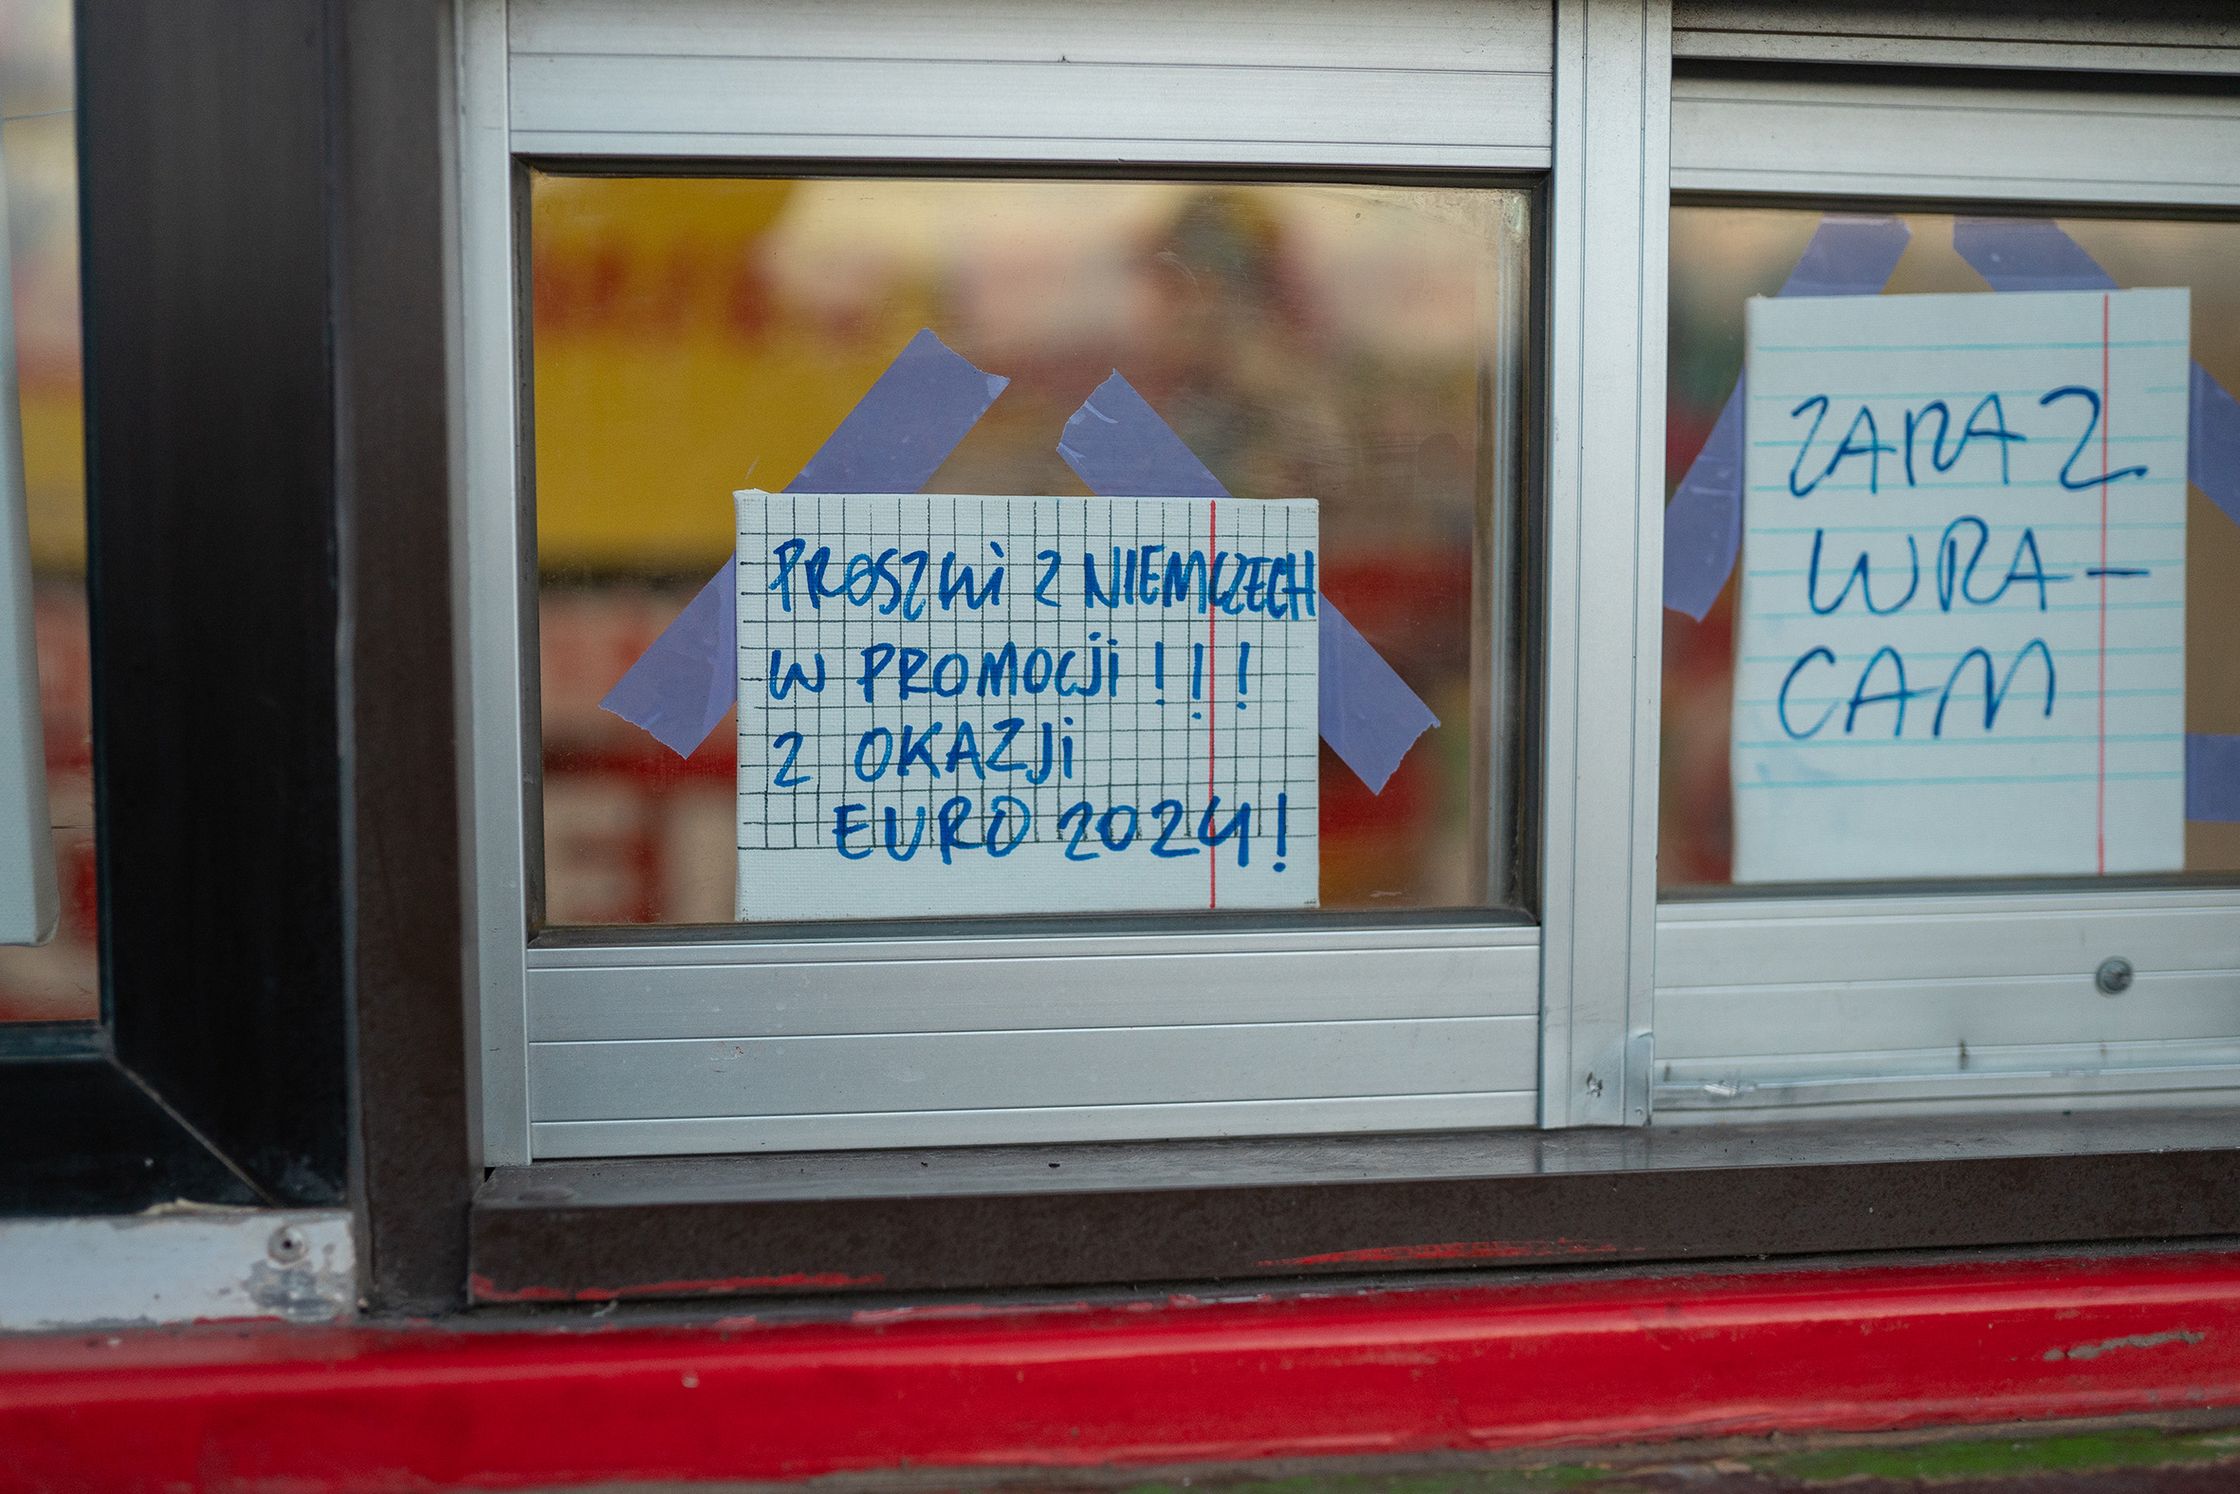 PROSZKi Z NIEMCZECH
W PROMOCJi !!!
Z OKAZJi
EURO 2024!
ZARAZ
WRA-
CAM